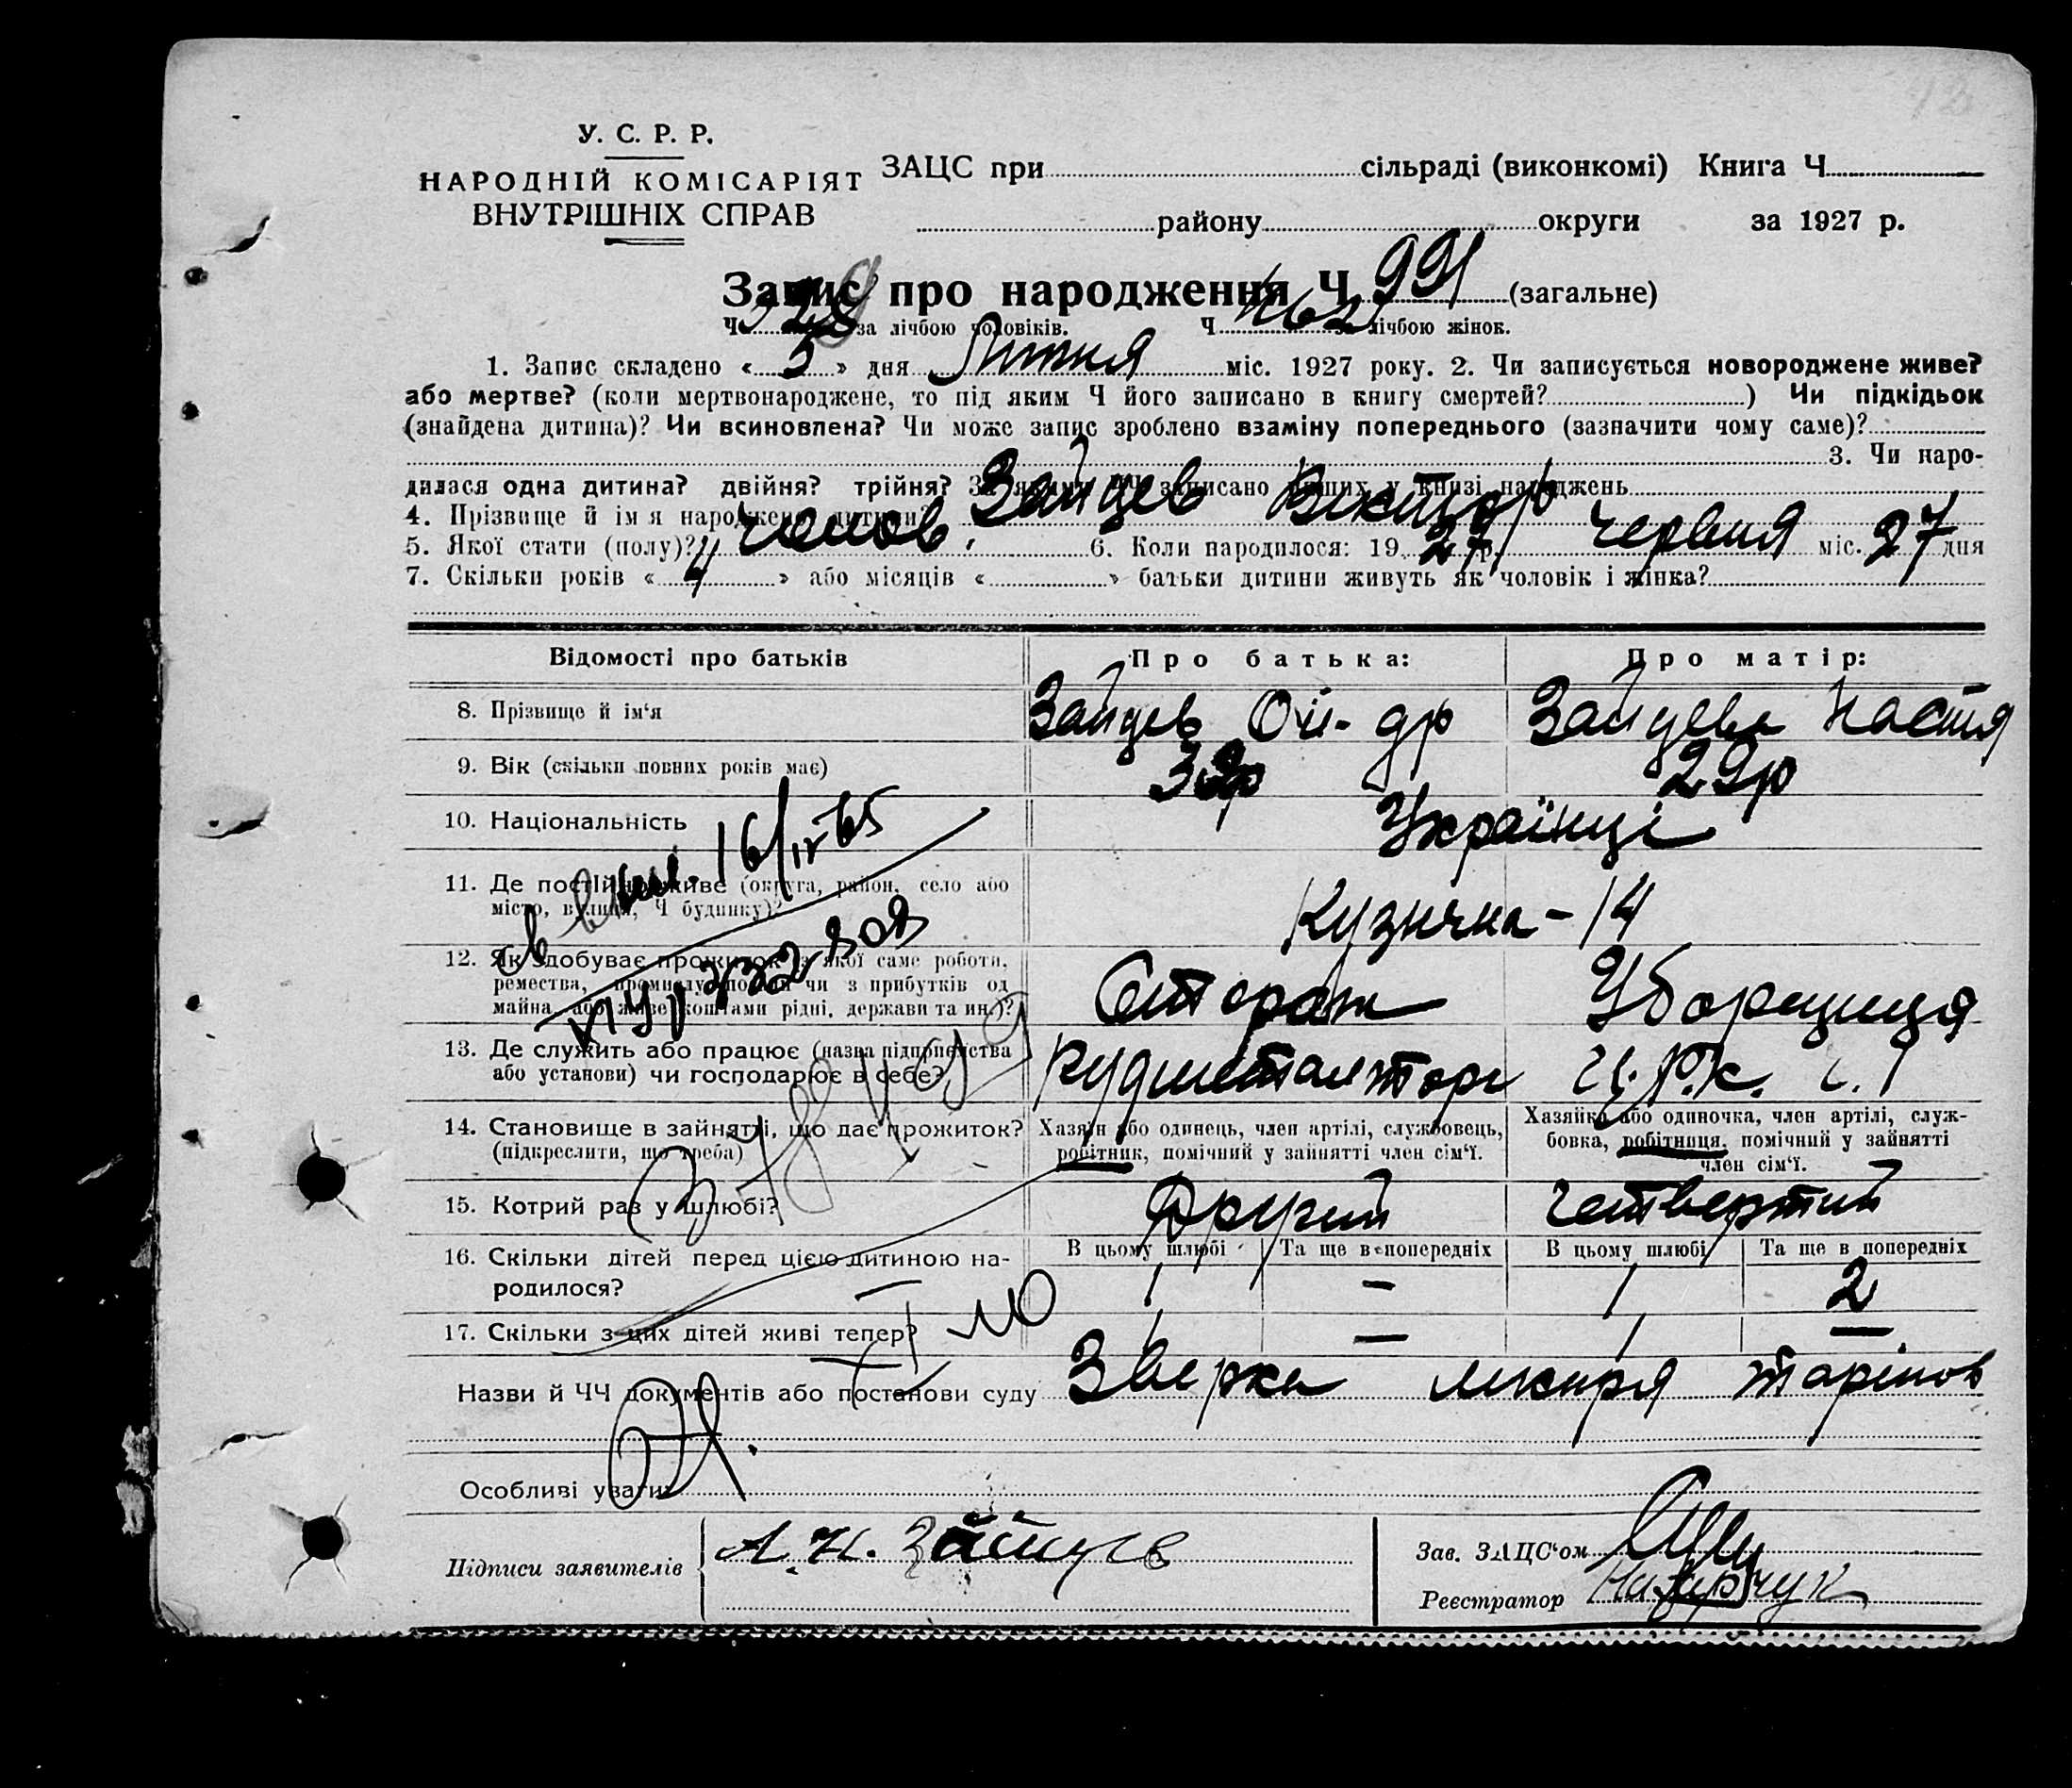 У. С. Р. Р.
НАРОДНІЙ КОМІСАРІЯТ
ВНУТРІШНІХ СПРАВ
ЗАЦС при сільраді (виконкомі) Книга Ч.
району округи за 1927 р.
Запис про народження Ч 991 (загальне)
Ч за лічбою чоловіків. Ч 462 за лічбою жінок.
1. Запис складено « 5 » дня Липня міс. 1927 року. 2. Чи записується новороджене живе?
або мертве? (коли мертвонароджене, то під яким Ч його записано в книгу смертей? ) Чи підкідьок
(знайдена дитина)? Чи всиновлена? Чи може запис зроблено взаміну попереднього (зазначити чому саме)?
3. Чи наро-
дилася одна дитина? двійня? трійня? За якими ЧЧ записано інших у книзі народжень
4. Прізвище й ім'я народженої дитини? Зайцев Виктор
5. Якої стати (полу)? Чолов. 6. Коли народилося: 19 27 р. червня міс. 27 дня
7. Скільки років « 4 » або місяців « » батьки дитини живуть як чоловік і жінка?
Відомості про батьків Про батька: Про матір:
8. Прізвище й ім'я Зайцев Зайцева Настя
9. Вік (скільки повних років має) 29р
10. Національність Українці
11. Де постійно живе (округа, район, село або
місто, вулиця, Ч будинку)? Кузнечна - 14
12. Як здобуває прожиток з якої саме роботи,
ремества, промислу, посади чи з прибутків од
майна, або живе коштами рідні, держави та ин.)? Сторож Уборщиця
13. Де служить або працює (назва підприємства
або установи) чи господарює в себе? Рудметалторг Ц.Р.К.
14. Становище в зайнятті, що дає прожиток?
(підкреслити, що треба)
Хазяїн або одинець, член артілі, службовець,
робітник, помічний у зайнятті член сім'ї.
Хазяйка або одиночка, член артілі, служ-
бовка, робітниця, помічний у зайнятті
член сім'ї.
15. Котрий раз у шлюбі? Другий Четвертий
16. Скільки дітей перед цією дитиною на-
родилося?
В цьому шлюбі Та ще в попередніх В цьому шлюбі Та ще в попередніх
1 - 1 2
17. Скільки з цих дітей живі тепер? 1 — 1 —
Назви й ЧЧ документів або постанови суду
Особливі уваги:
Підписи заявителів А. Н. Зайцев
Зав. ЗАЦС'ом
Реєстратор Назарчук